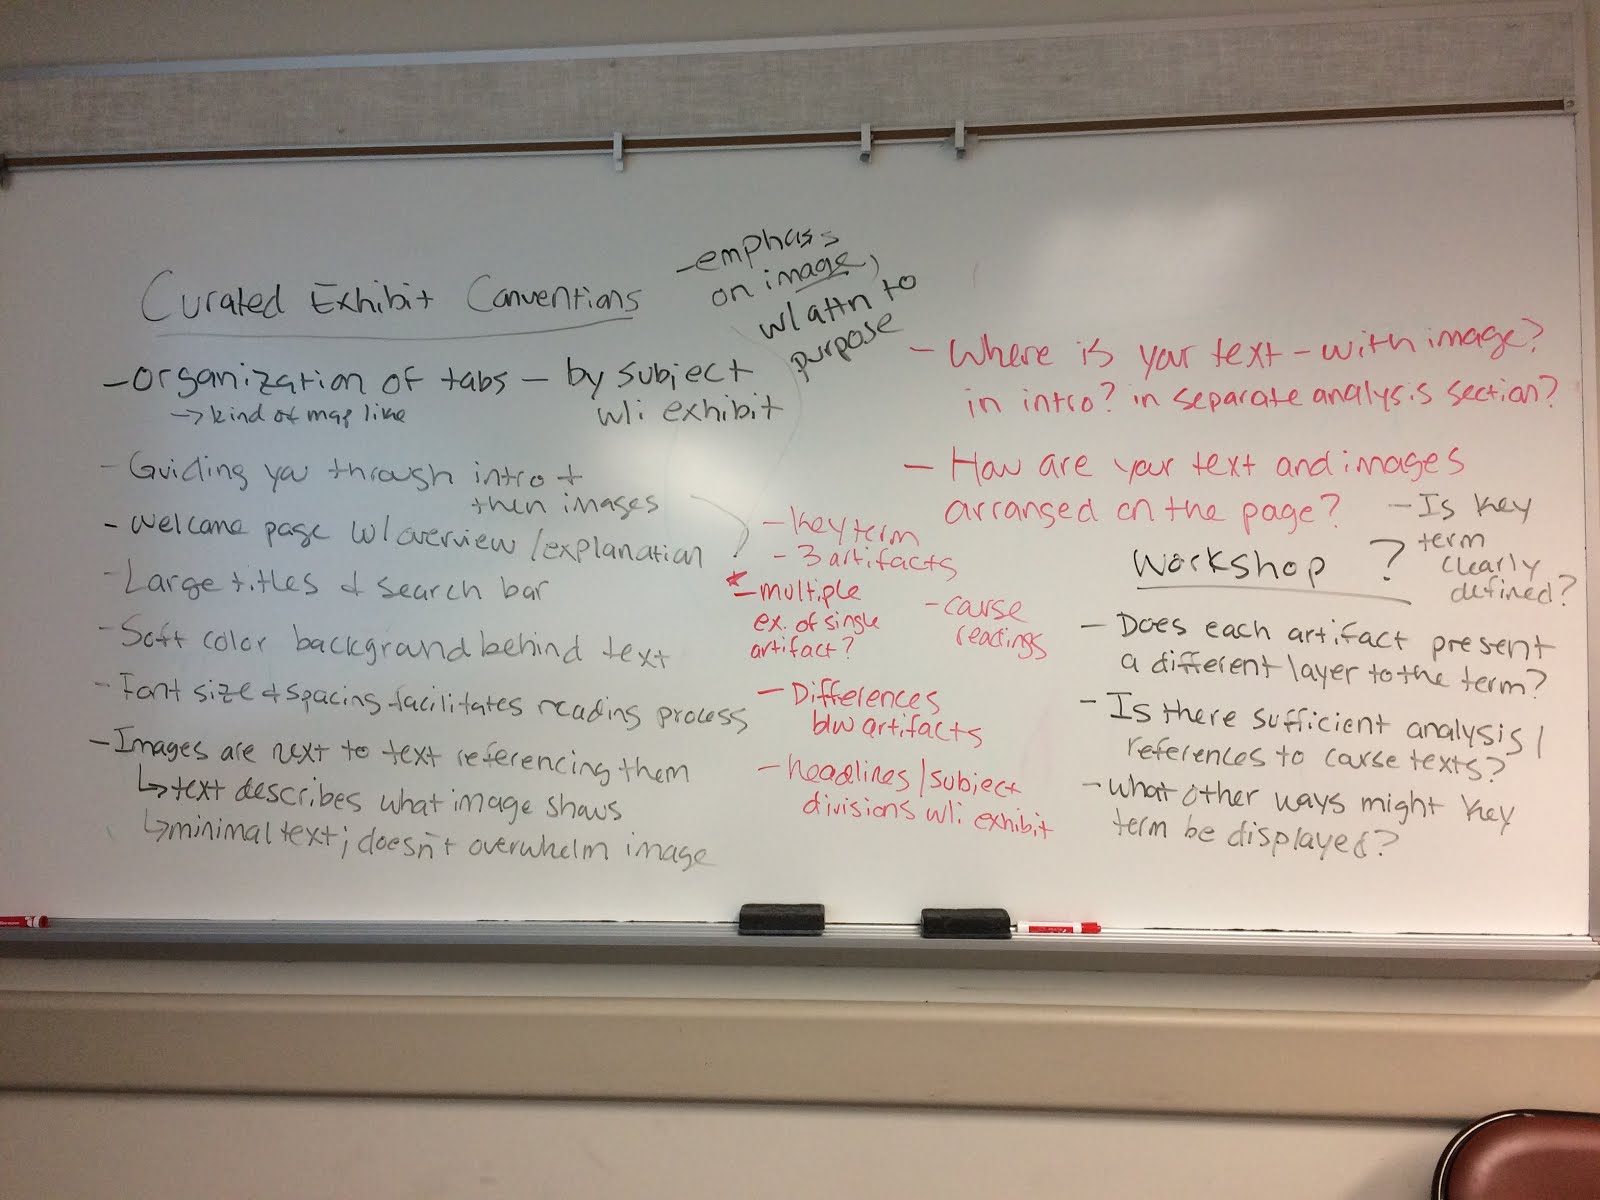 Curated Exhibit Conventions
- organization of tabs - by subject
w/i exhibit
→ kind of map like
- Guiding you through intro +
then images
- Welcome page w/ overview / explanation
- Large titles & search bar
- Soft color background behind text
- Font size & spacing facilitates reading process
- Images are next to text referencing them
↳ text describes what image shows
↳ minimal text; doesn't overwhelm image
- emphass
on image,
w/ attn to
purpose
- key term
- 3 artifacts
* - multiple
ex. of single
artifact?
- course
readings
- Differences
b/w artifacts
- headlines / subject
divisions w/i exhibit
- Where is your text - with image?
in intro? in separate analysis section?
- How are your text and images
arranged on the page?
Workshop ?
- Is key
term
clearly
defined?
- Does each artifact present
a different layer to the term?
- Is there sufficient analysis /
references to course texts?
- What other ways might key
term be displayed?